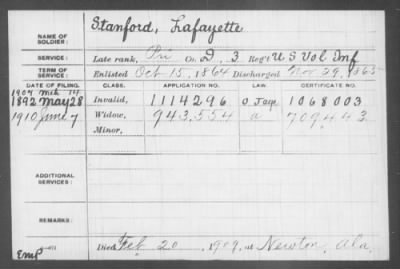 NAME OF SOLDIER: Stanford, Lafayette
SERVICE: Late rank, Pri Co. D, 3 Reg't U S Vol Inf
TERM OF SERVICE: Enlisted Oct 15, 1864 Discharged Nov 29, 1865
DATE OF FILING. CLASS. APPLICATION NO. LAW. CERTIFICATE NO.
1907 Mch 14
1892 May 28 Invalid, 1114296 1068003
1910 June 7 Widow, 943,554 a 709443
Minor,
ADDITIONAL SERVICES:
REMARKS:
Died Feb 20, 1909, at Newton, Ala.